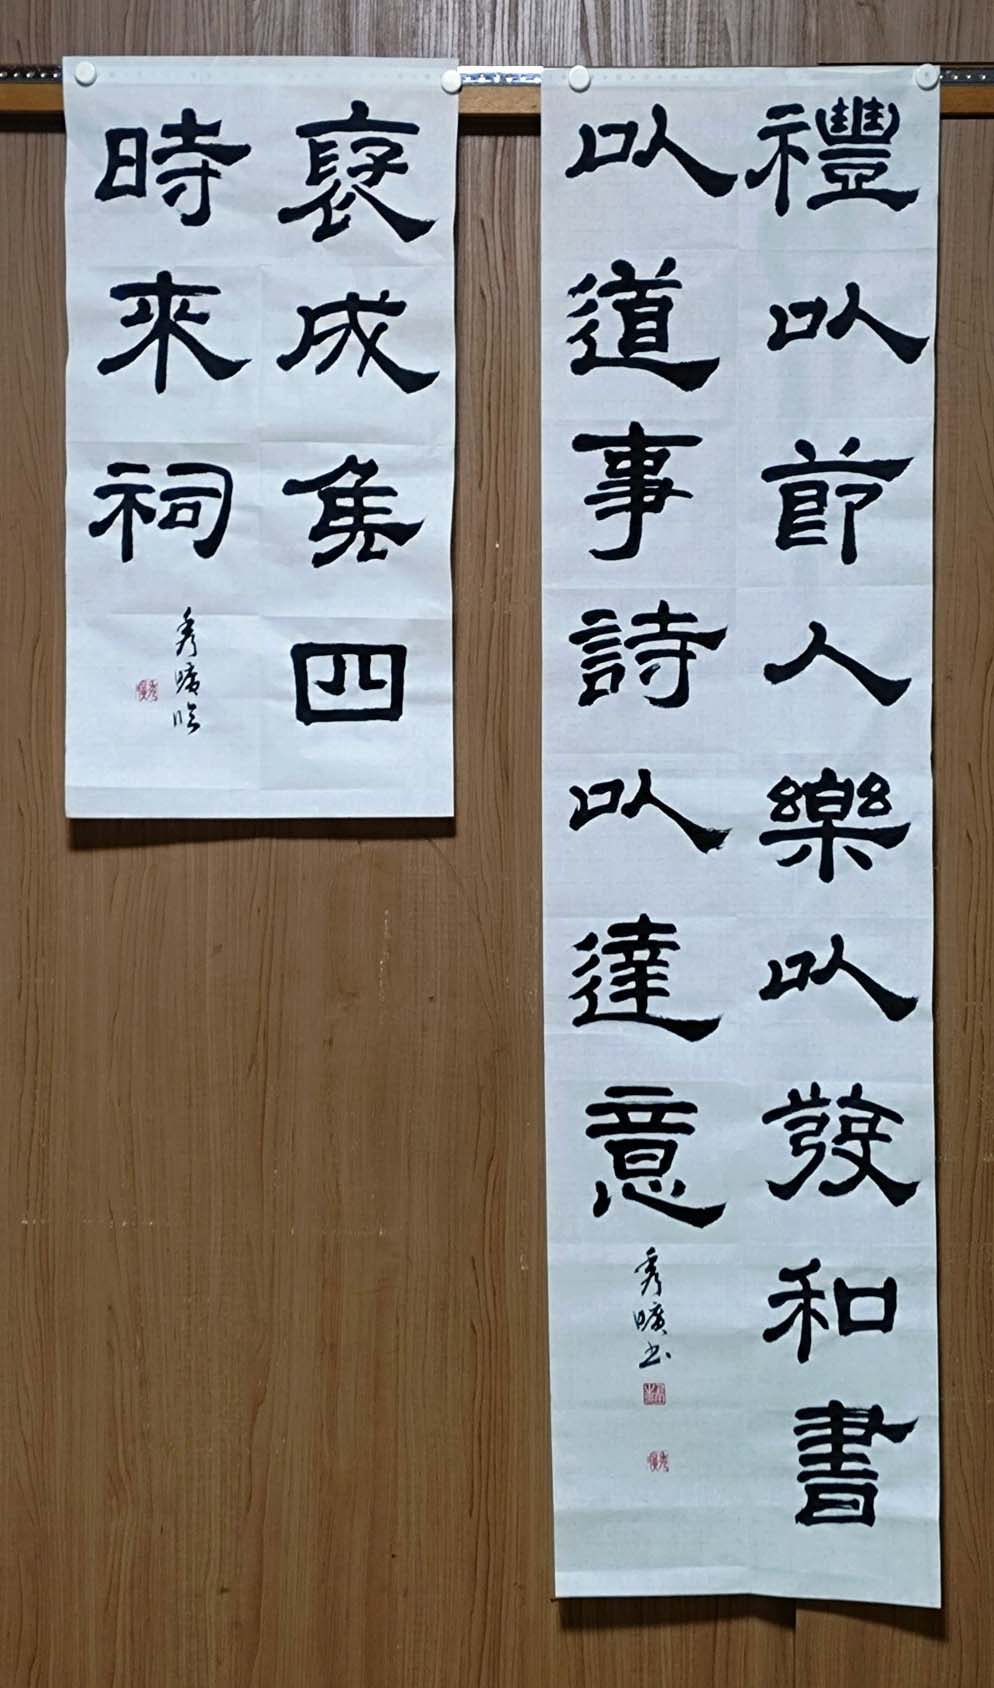 禮以節人樂以發和書
以道事詩以達意
秀曠書
褒成矦四
時來祠
秀曠臨